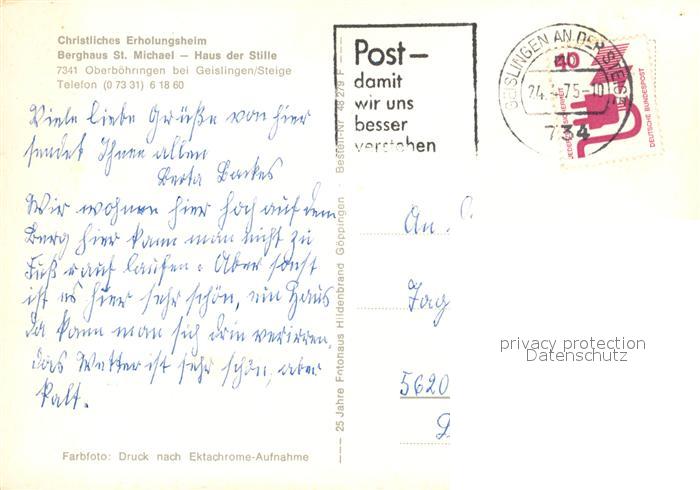 Christliches Erholungsheim
Berghaus St. Michael — Haus der Stille
7341 Oberböhringen bei Geislingen/Steige
Telefon (0 73 31) 6 18 60
Viele liebe Grüße von hier
sendet Ihnen allen
Berta Backes
Wir wohnen hier hoch auf dem
Berg hier kann man nicht zu
Fuß rauf laufen. Aber sonst
ist es hier sehr schön, ein Haus
da kann man sich drin verirren,
das Wetter ist sehr schön, aber
kalt.
Farbfoto: Druck nach Ektachrome-Aufnahme
25 Jahre Fotohaus Hildenbrand Göppingen · Bestell-Nr. 48 279 F
Post—
damit
wir uns
besser
verstehen
GEISLINGEN AN DER STEIGE
24. 4.75-10
734
40
JEDERZEIT SICHERHEIT
DEUTSCHE BUNDESPOST
An
5620
privacy protection
Datenschutz